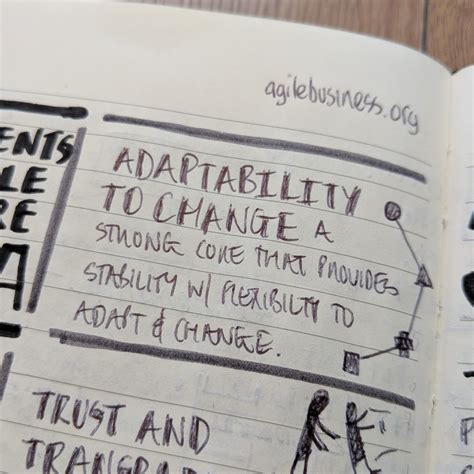 agilebusiness.org
ENTS
LE
RE
A
ADAPTABILITY
TO CHANGE A
STRONG CORE THAT PROVIDES
STABILITY W/ FLEXIBILTY TO
ADAPT & CHANGE.
TRUST AND
TRANSPA